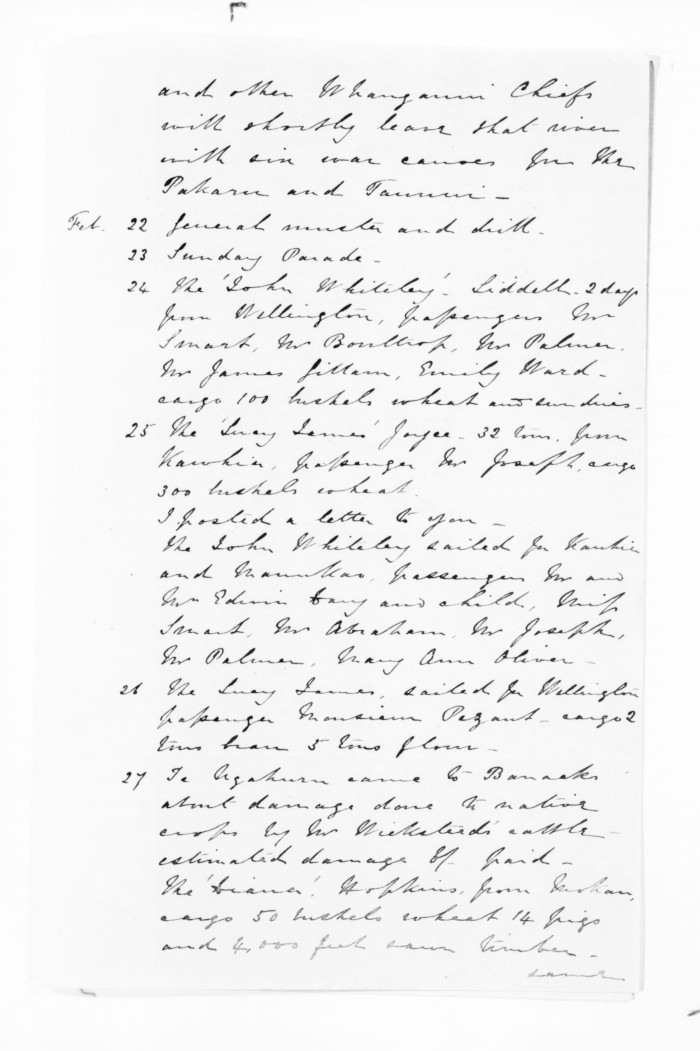 and other Whanganui Chiefs
will shortly leave that river
with six war canoes for the
Pakaru and Taunui -
Feb. 22 General muster and drill.
23 Sunday Parade -
24 The 'John Whiteley' - Liddell - 2 days
from Wellington, passengers Mr
Smart, Mr Mr Palmer.
Mr James Gillam, Emily Ward -
cargo 100 bushels wheat and sundries -
25 The 'Lucy James' Joyce - 32 tons, from
Kawhia, passenger Mr Joseph, cargo
300 bushels wheat.
I posted a letter to you -
The John Whiteley sailed for Kawhia
and Manukao, passengers Mr and
Mrs Edwin and child, Miss
Smart, Mr Abraham, Mr Joseph,
Mr Palmer, Mary Ann Oliver -
26 The Lucy James, sailed for Wellington
passenger Monsieur Pezant - cargo 2
tons bran 5 tons flour -
27 Te Ngahuru came to Baracks
about damage done to native
crops by Mr Wicksteed's cattle -
estimated damage paid -
The 'Diana', Hopkins, from Mokau,
cargo 50 bushels wheat 14 pigs
and 4,000 feet sawn timber -